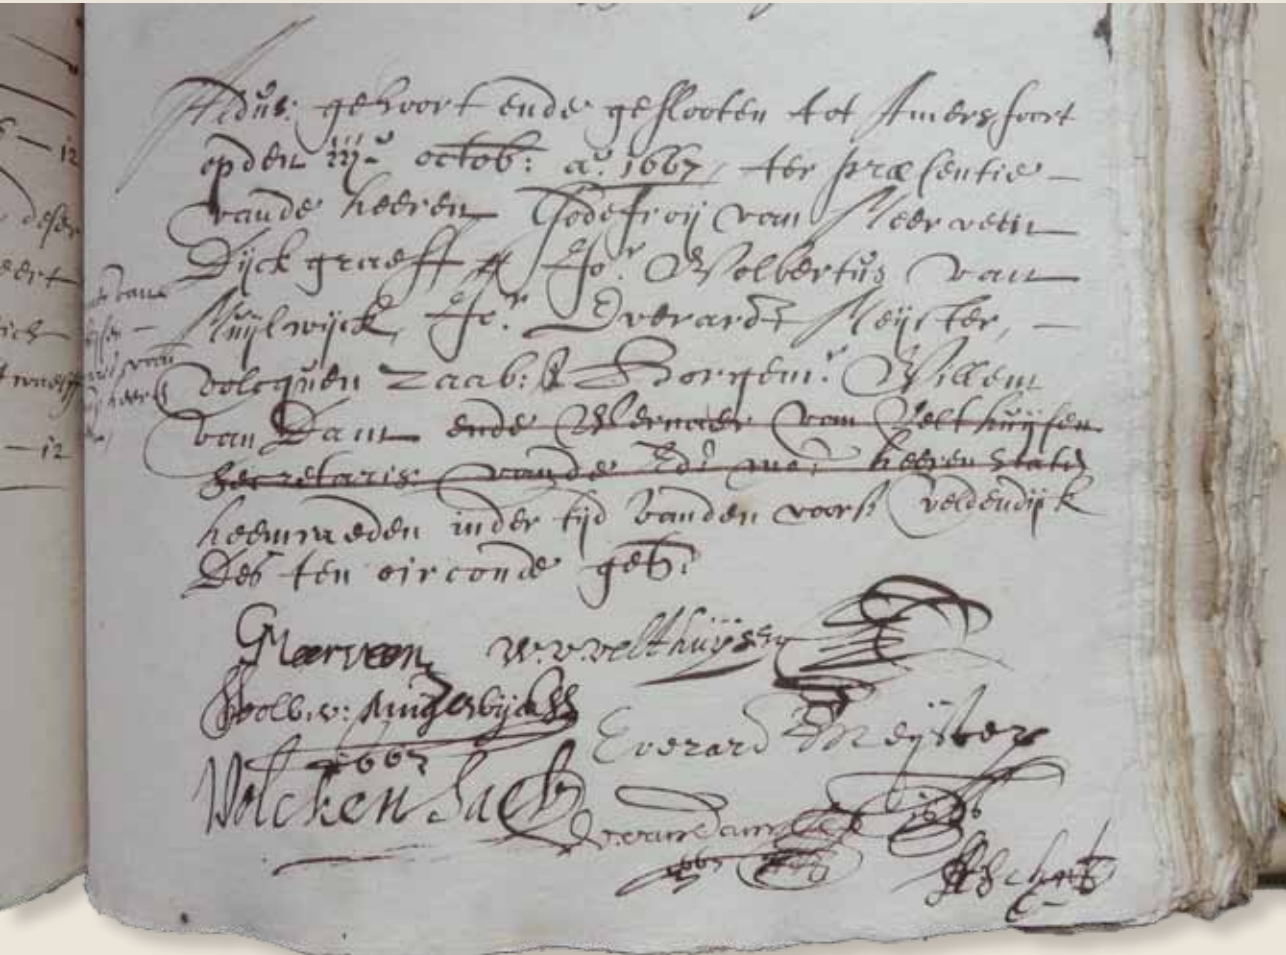 Aldus gehoort ende geslooten tot Amersfoort
op den iij octob: a.º 1667, ter præsentie
vande heeren Godefroij van Meerveen
Dijckgraeff Jo.r Wolbertus van
Jo.r Everard Meijster,
Volcquen Zaab: Borgem.r Willem
van Dam ende Wernaer van Velthuijsen
Secretaris vande Ed: mo: heeren Staten
heemraeden inder tijd vanden voors. Veldendijk
Des ten oirconde get:
GMeerveen W.V.Velthuijsen
Wolb. v:
1667 Everard Meijster
Volcken Sack
W. van Dam
1667
12
deser
eert
12
van
heer